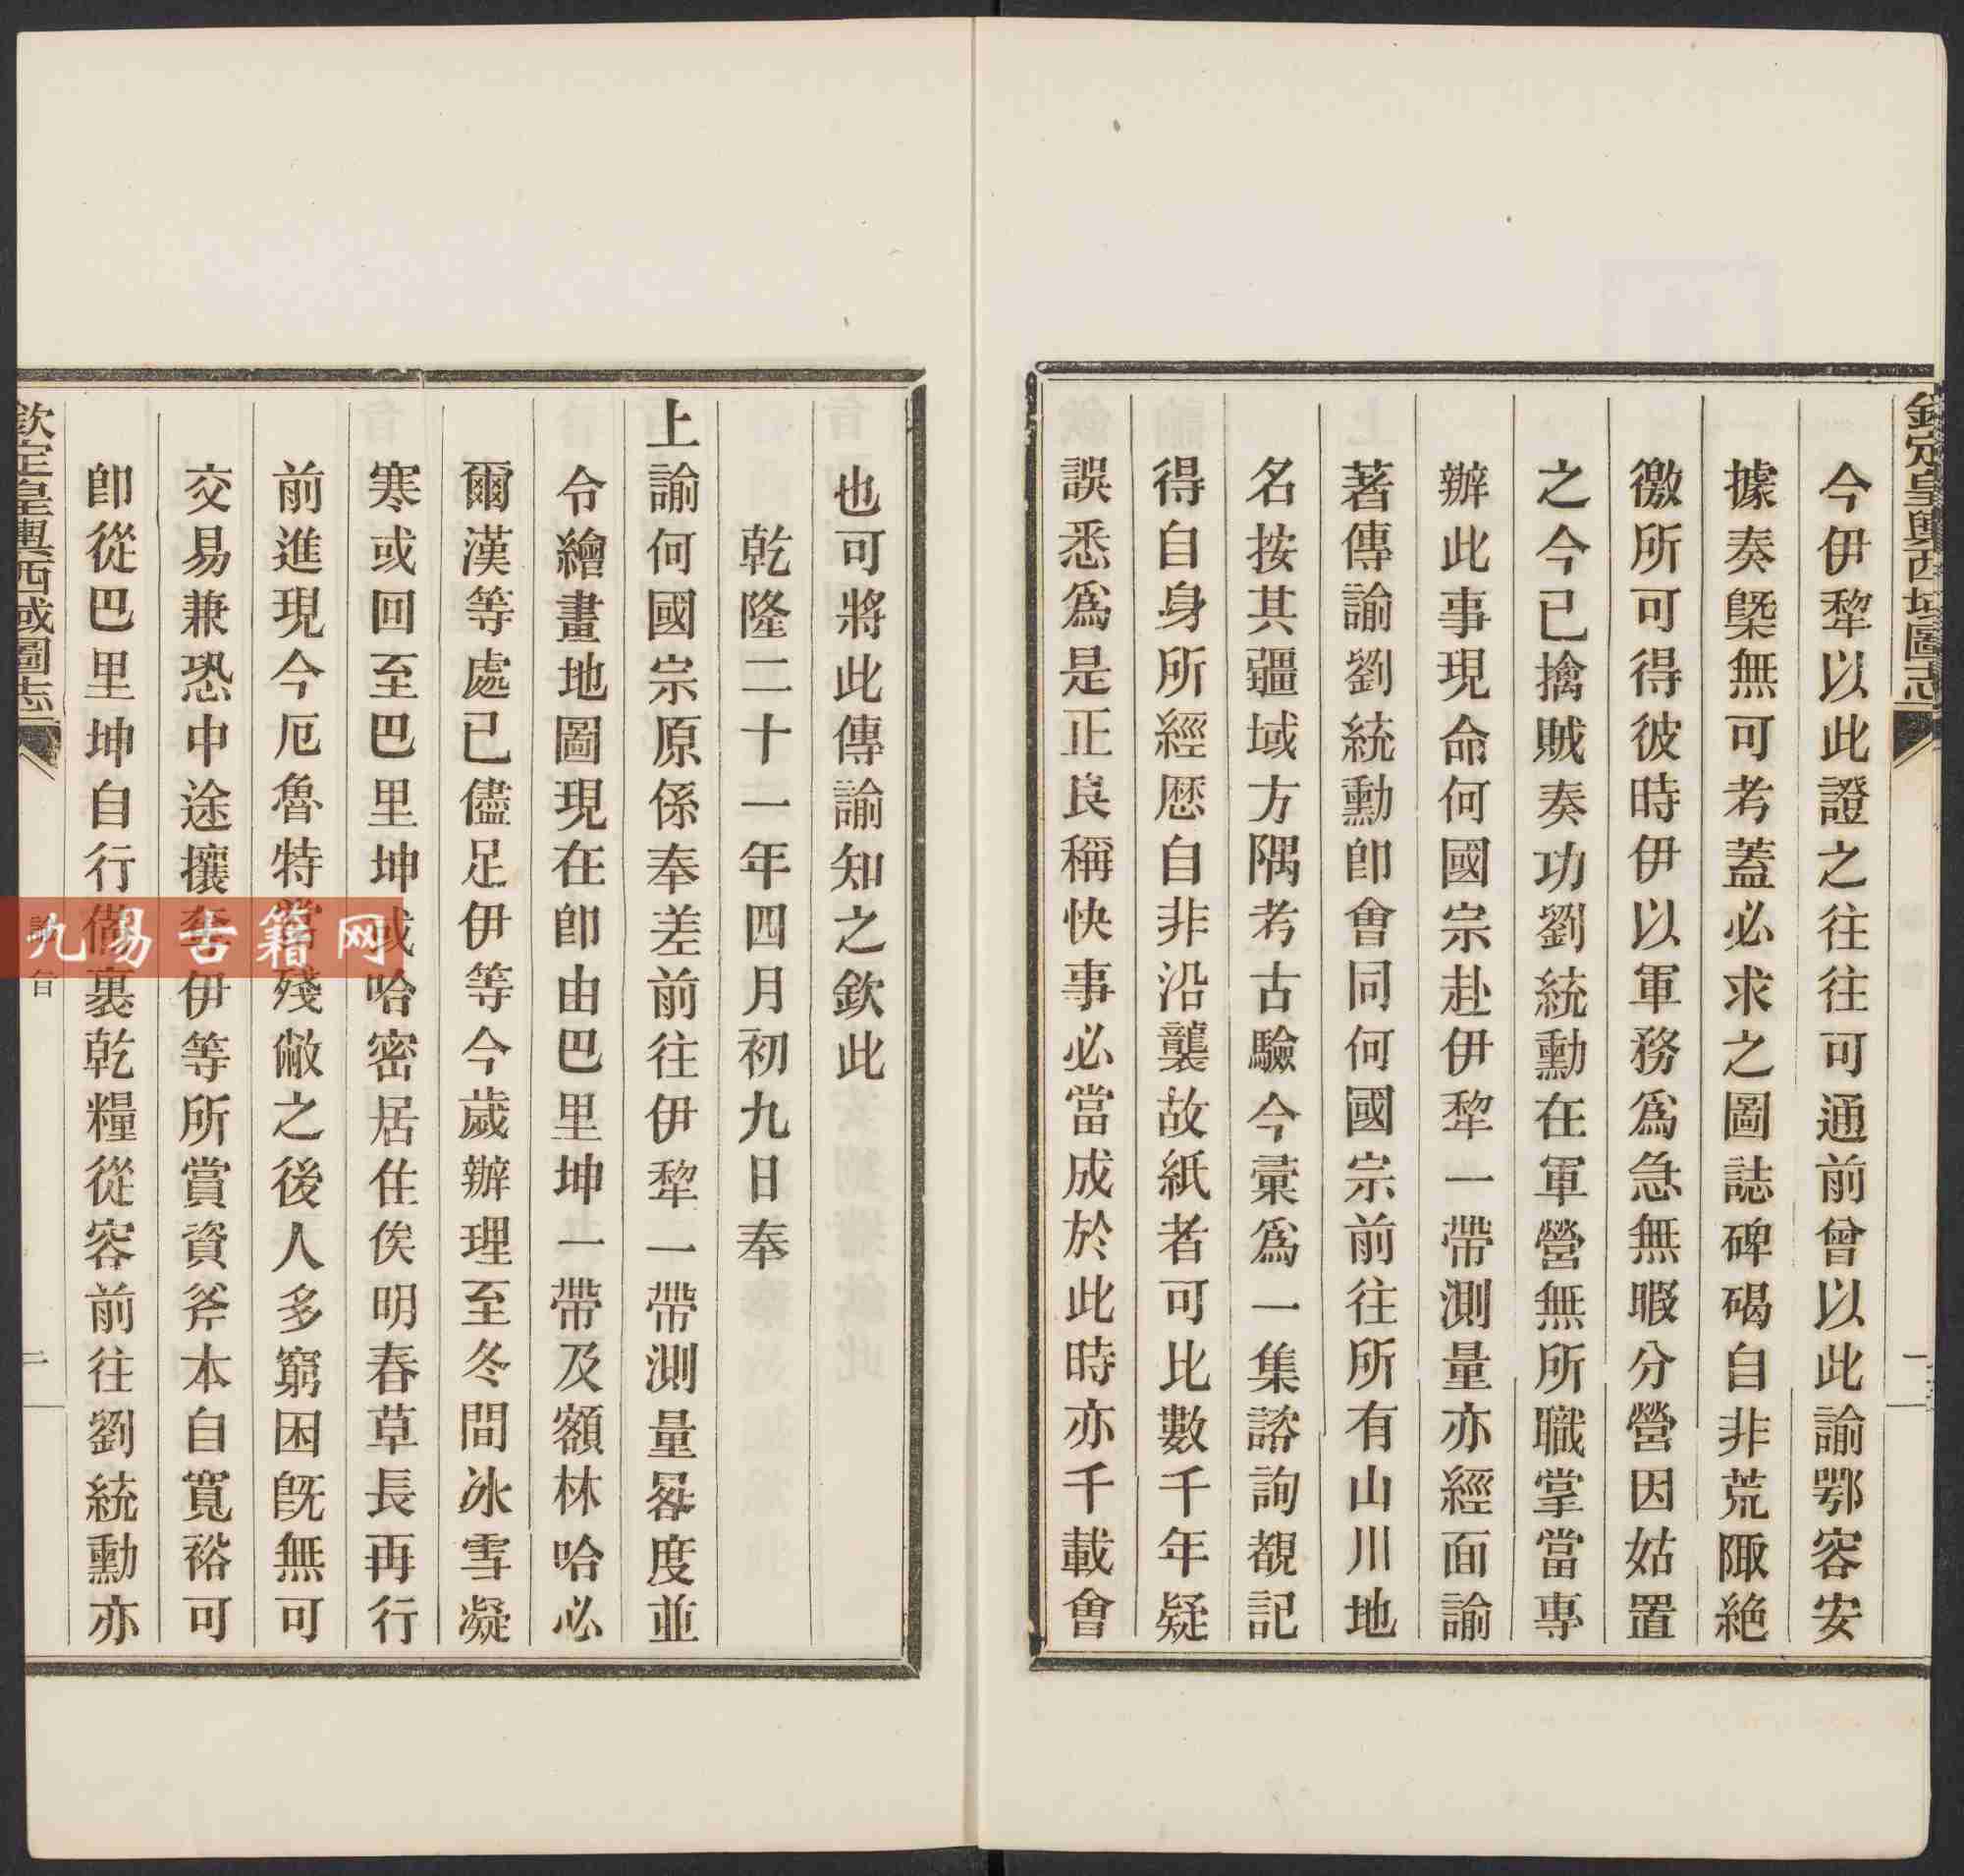 欽定皇輿西域圖志
今伊犂以此證之往往可通前曾以此諭鄂容安
據奏槩無可考蓋必求之圖誌碑碣自非荒陬絶
徼所可得彼時伊以軍務爲急無暇分營因姑置
之今已擒賊奏功劉統勳在軍營無所職掌當專
辦此事現命何國宗赴伊犂一帶測量亦經面諭
著傳諭劉統勳卽會同何國宗前往所有山川地
名按其疆域方隅考古驗今彙爲一集諮詢覩記
得自身所經歷自非沿襲故紙者可比數千年疑
誤悉爲是正良稱快事必當成於此時亦千載會
也可將此傳諭知之欽此
乾隆二十一年四月初九日奉
上諭何國宗原係奉差前往伊犂一帶測量晷度並
令繪畫地圖現在卽由巴里坤一帶及額林哈必
爾漢等處已儘足伊等今歲辦理至冬間冰雪凝
寒或回至巴里坤或哈密居住俟明春草長再行
前進現今厄魯特當殘敝之後人多窮困旣無可
交易兼恐中途攘奪伊等所賞資斧本自寬裕可
卽從巴里坤自行備裹乾糧從容前往劉統勳亦
欽定皇輿西域圖志
諭旨
二
九易古籍网